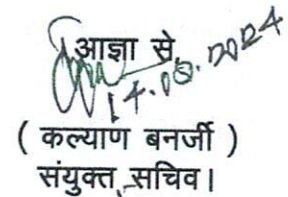 आज्ञा से,
14.08.2024
( कल्याण बनर्जी )
संयुक्त सचिव।